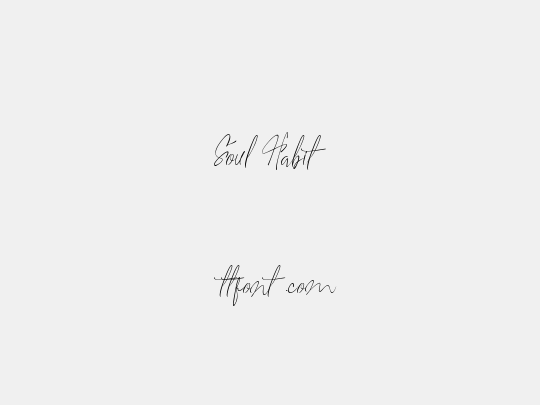 Soul Habit
ttfont.com